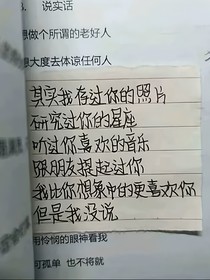 说实话
想做个所谓的老好人
想大度去体谅任何人
其实我存过你的照片
研究过你的星座
听过你喜欢的音乐
跟朋友提起过你
我比你想象中的更喜欢你
但是我没说
用怜悯的眼神看我
可孤单 也不将就